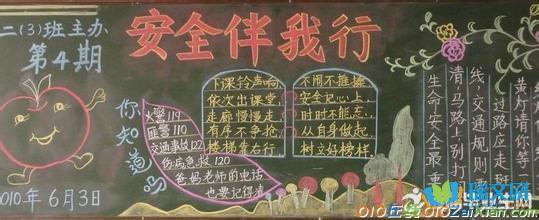 二(3)班主办
第4期
安全伴我行
你知道吗
火警119
匪警110
交通事故122
伤病急救120
爸妈老师的电话
也要记得清
下课铃声响
依次出课堂
走廊慢慢走
有序不争抢
楼梯靠右行
不闹不推搡
安全记心上,
时时不能忘,
从自身做起,
树立好榜样
黄灯请你等
过路应走斑
线,交通规则
清,马路上别打
生命安全最重
010年6月3
瑞文网